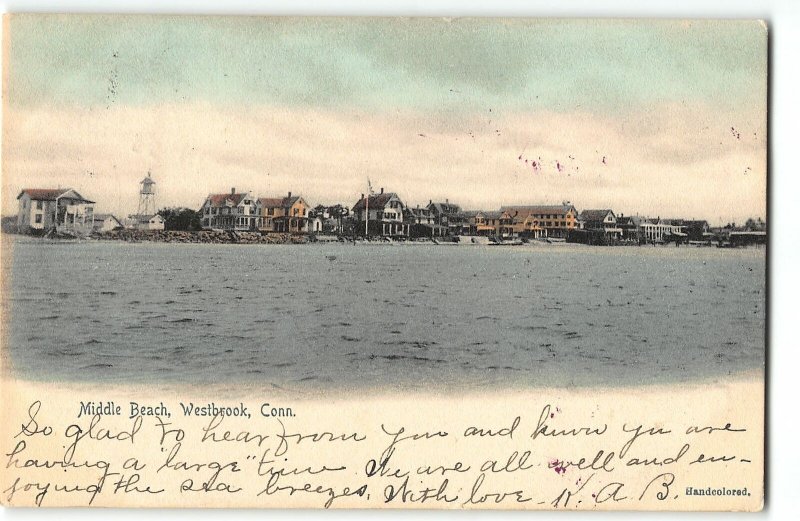 Middle Beach, Westbrook, Conn.
So glad to hear from you and know you are
having a "large" time We are all well and en-
joying the sea breezes, With love - K. A. B.
Handcolored.